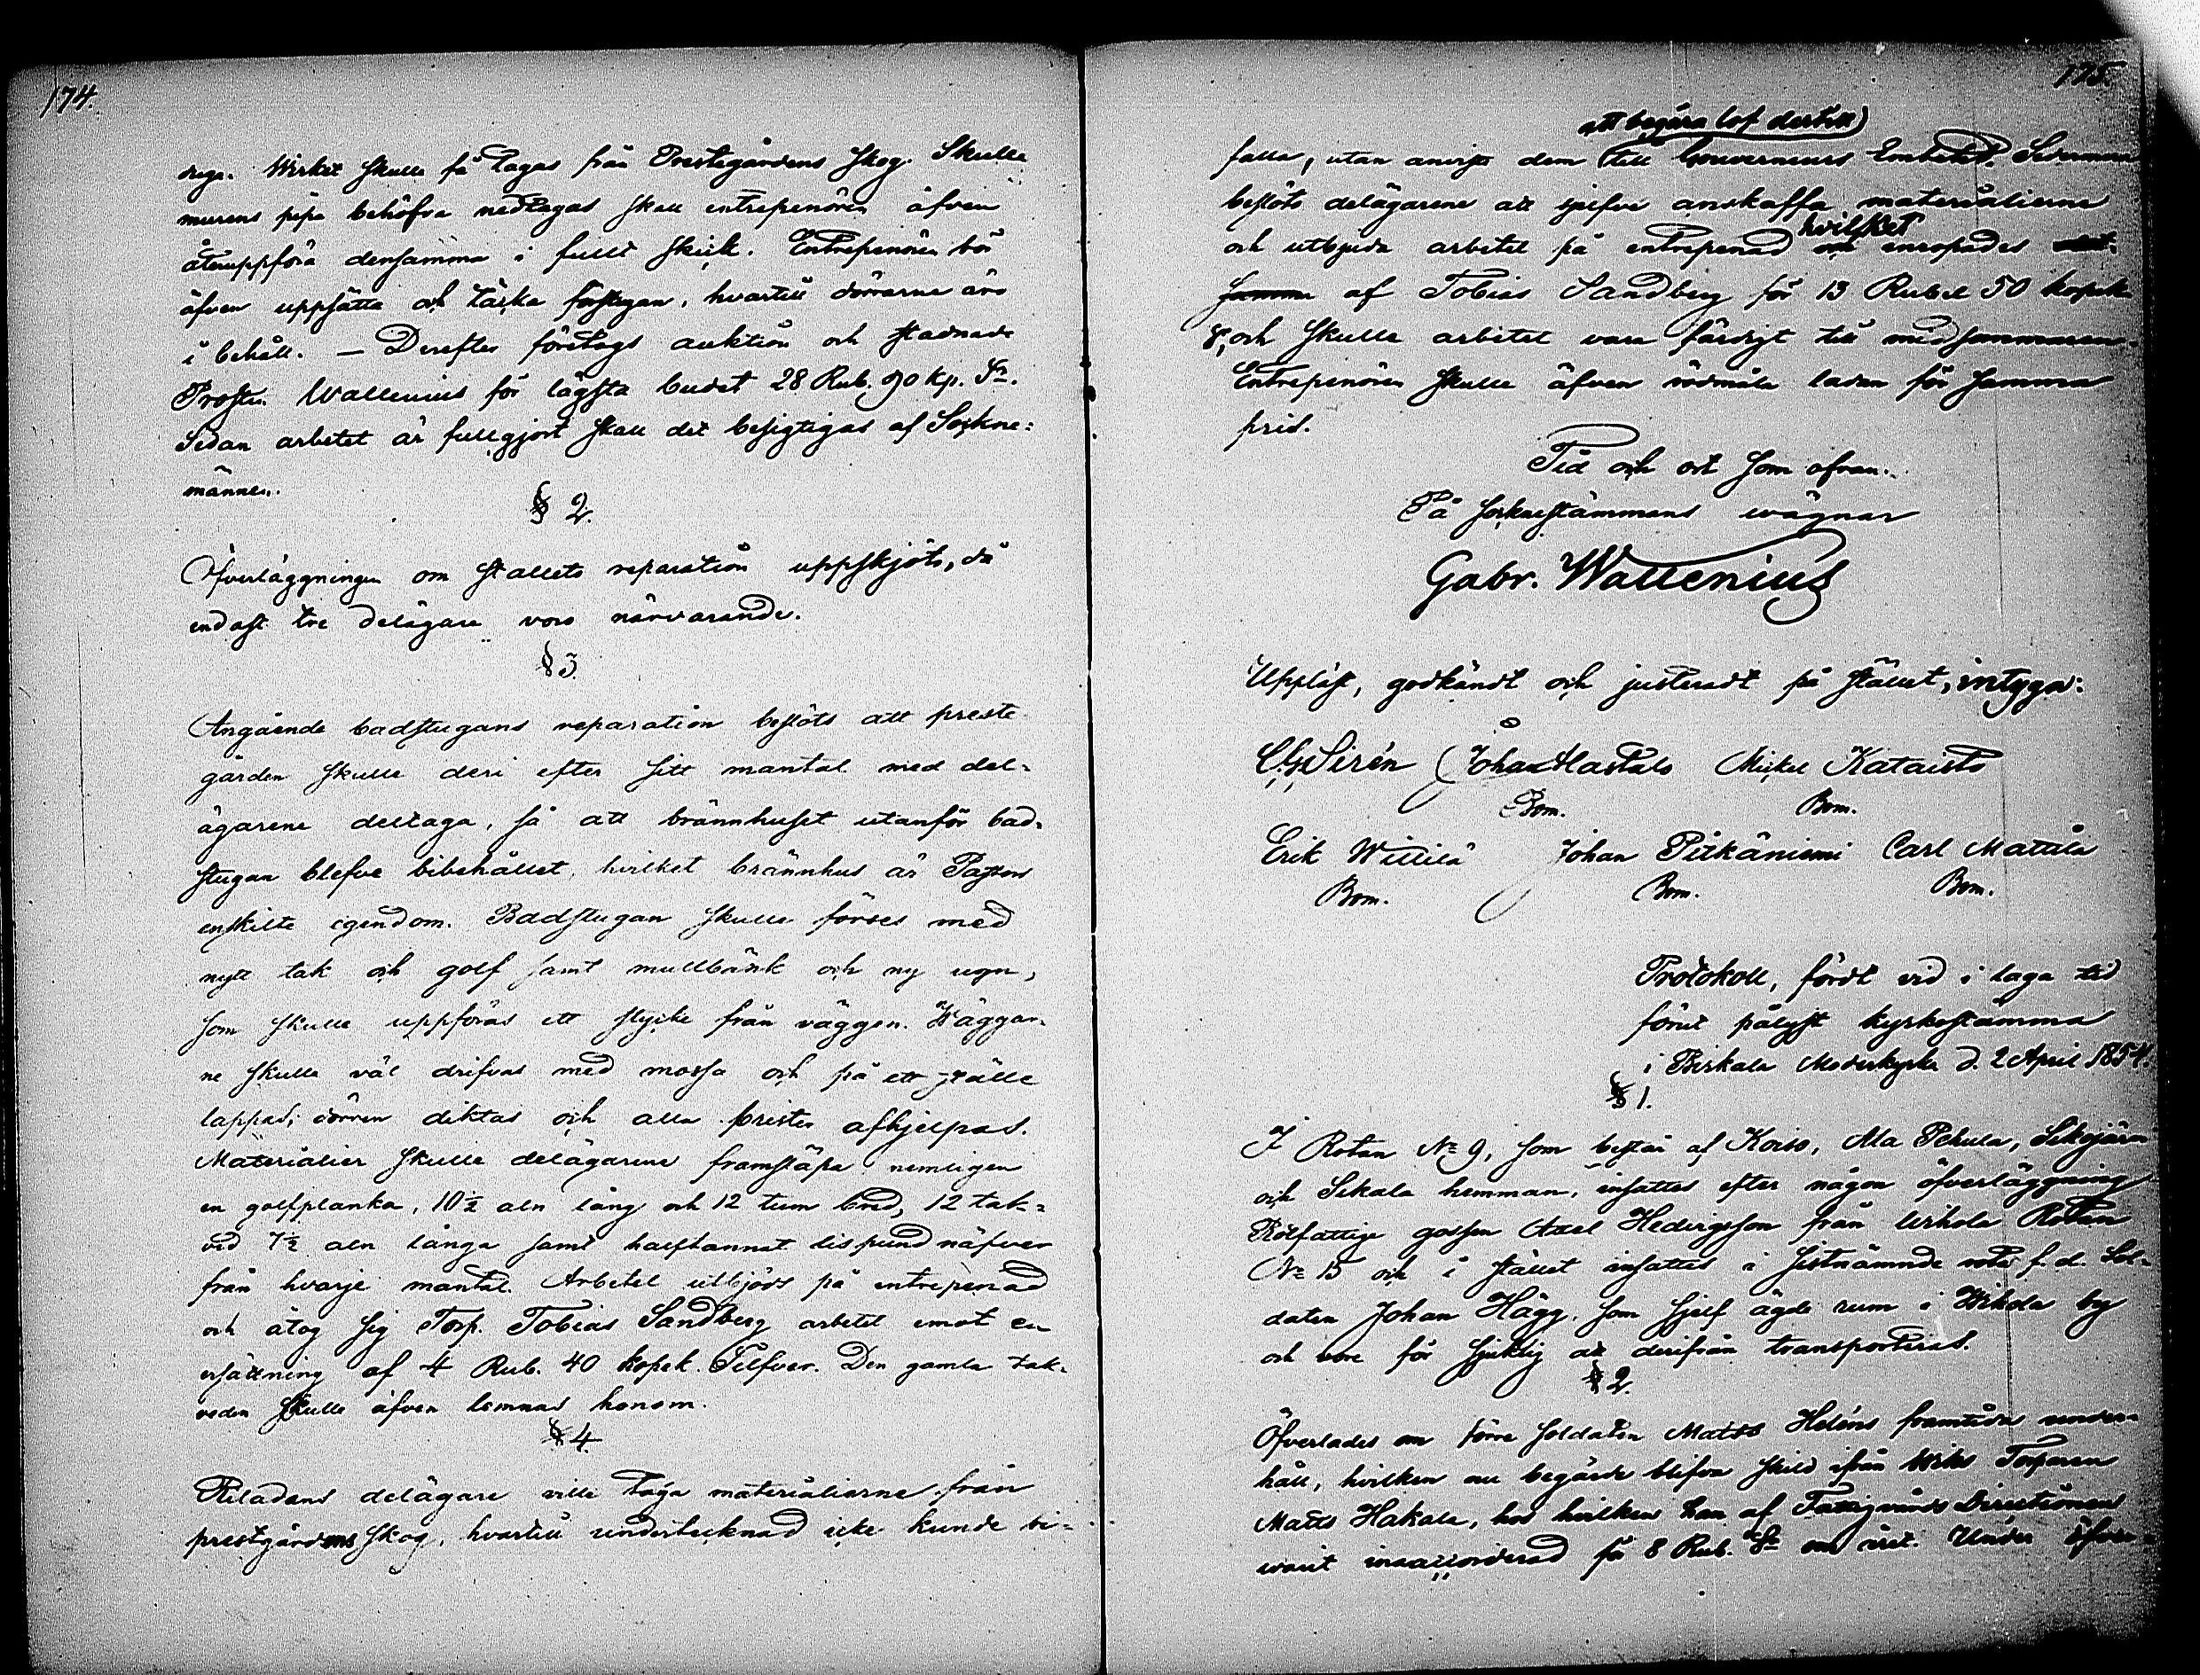 174.
drega. Wirket skulle få tagas från Prestegårdens skog. Skulle
murens pipa behöfva nedtagas skall entreprenören äfven
återuppföra densamma i fullt skick. Entreprenören bör
äfven uppsätta och täcka förstugan, hvartill dörrarne äro
i behåll. — Derefter företogs auktion och stadnade
Prosten Wallenius för lägsta budet 28 Rub. 90 kp. Sr.
Sedan arbetet är fullgjort skall det besigtigas af Sockne:
männen.
§ 2.
Öfverläggningen om stallets reparation uppskjöts, då
endast tre delägare voro närvarande.
§ 3.
Angående badstugans reparation beslöts att preste
gården skulle deri efter sitt mantal med del-
ägarene deltaga, så att brännhuset utanför bad-
stugan blefve bibehållet, hvilket brännhus är Pastors
enskilta egendom. Badstugan skulle förses med
nytt tak och golf samt mullbänk och ny ugn,
som skulle uppföras ett stycke från väggen. Wäggar-
ne skulle väl drifvas med mossa och på ett ställe
lappas; dörren diktas och alla brister afhjelpas.
Materialier skulle delägarene framsläpa nemligen
en golfplanka, 10½ aln lång och 12 tum bred, 12 tak-
ved 7½ aln långa samt halftannat lispund näfver
från hvarje mantal. Arbetet utbjöds på entreprenad
och åtog sig Torp. Tobias Sandberg arbetet emot en
ersättning af 4 Rub. 40 kopek Silfver. Den gamla tak-
veden skulle äfven lemnas honom.
§ 4.
Riladans delägare ville taga materialierne från
prestgårdens skog, hvartill undertecknad icke kunde bi-
175.
att begära lof dertill
falla, utan anvisa dem till Gouverneurs Embetet. Sedermera
beslöts delägarene att sjelfve anskaffa materialierne
hvilket
och utbjuda arbetet på entreprenad om enropades
samma af Tobias Sandberg för 13 Rubel 50 kopek
Sr, och skulle arbetet vara färdigt till midsommaren.
Entreprenören skulle äfven rödmåla ladan för samma
pris.
Tid och ort som ofvan.
På sockenstämmans wägnar
Gabr. Wallenius
Uppläst, godkändt och justeradt på stället, intyga:
C. G. Sirén Johan Hastala Mickel Kataisto
Bom. Bom.
Erik Willilä Johan Pitkäniemi Carl Mattila
Bom. Bom. Bom.
Protokoll, fördt vid i laga tid
förut pålyst kyrkostämma
i Birkala Moderkyrka d. 2 April 1854.
§ 1.
I Rotan No 9, som består af Koivo, Ala Pehula, Sikojärvi
och Sikala hemman, insattes efter någon öfverläggning
Rotfattige gossen Axel Hedvigsson från Urhola Rotan
No 15 och i stället insattes i sistnämnde rota f. d. Sol-
daten Johan Hägg, som sjelf ägde rum i Wihola by
och vore för sjuklig att derifrån transporteras.
§ 2.
Öfverlades om förre soldaten Matts Heléns framtida under-
håll, hvilken nu begärde blifva skild ifrån Torparen
Matts Hakala, hos hvilken han af Fattigvårds Directionen
warit inackorderad för 8 Rub. Sr om året. Under öfver-